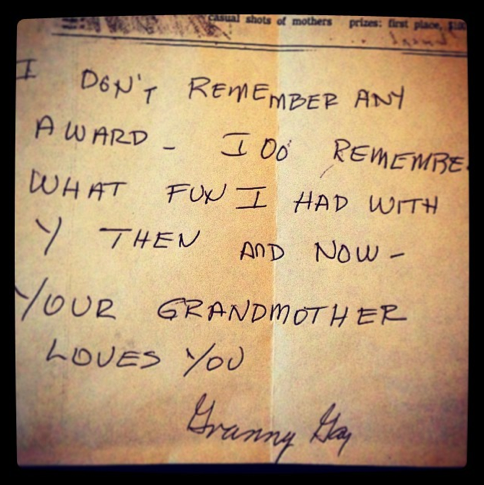 casual shots of mothers prizes: first place,
I DON'T REMEMBER ANY
AWARD - I DO REMEMBE
WHAT FUN I HAD WITH
Y THEN AND NOW -
YOUR GRANDMOTHER
LOVES YOU
Granny Gay